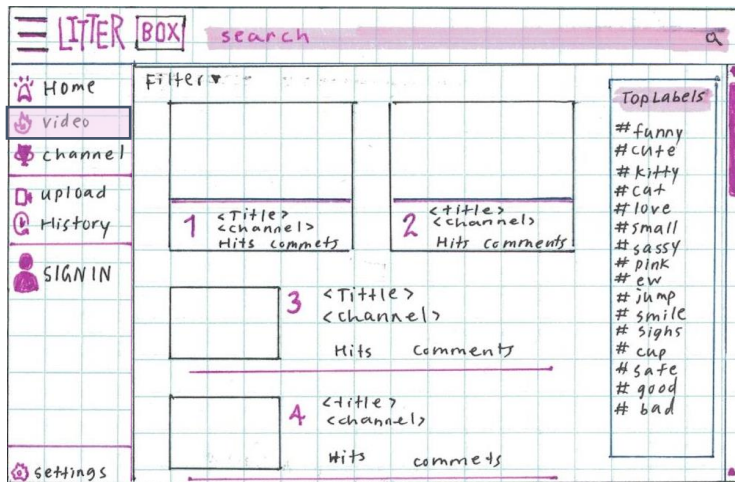 LITTER BOX search
Home
video
channel
upload
History
SIGN IN
settings
Filter
1 <Title>
<channel>
Hits commets
2 <title>
<channel>
Hits comments
3 <Tittle>
<channel>
Hits comments
4 <title>
<channel>
Hits commets
Top Labels
# funny
# cute
# kitty
# cat
# love
# small
# sassy
# pink
# ew
# jump
# smile
# sighs
# cup
# safe
# good
# bad